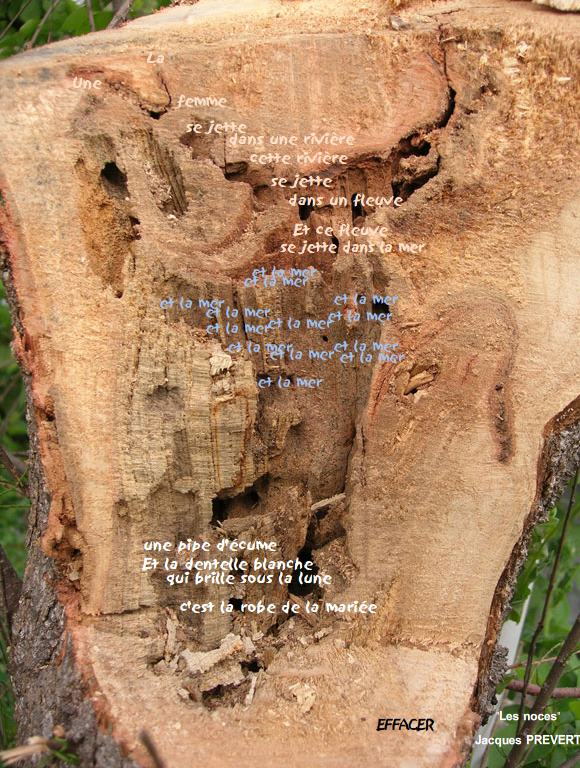 La
Une
femme
se jette
dans une rivière
cette rivière
se jette
dans un fleuve
Et ce fleuve
se jette dans la mer
et la mer
et la mer
et la mer
et la mer
et la mer
et la mer
et la mer
et la mer
et la mer
et la mer
et la mer
et la mer
et la mer
une pipe d'écume
Et la dentelle blanche
qui brille sous la lune
c'est la robe de la mariée
EFFACER
'Les noces'
Jacques PREVERT